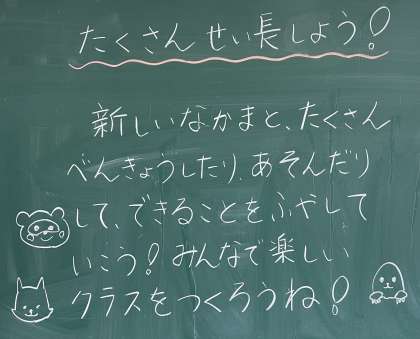 たくさんせい長しよう!
新しいなかまと、たくさん
べんきょうしたり、あそんだり
して、できることをふやして
いこう!みんなで楽しい
クラスをつくろうね!